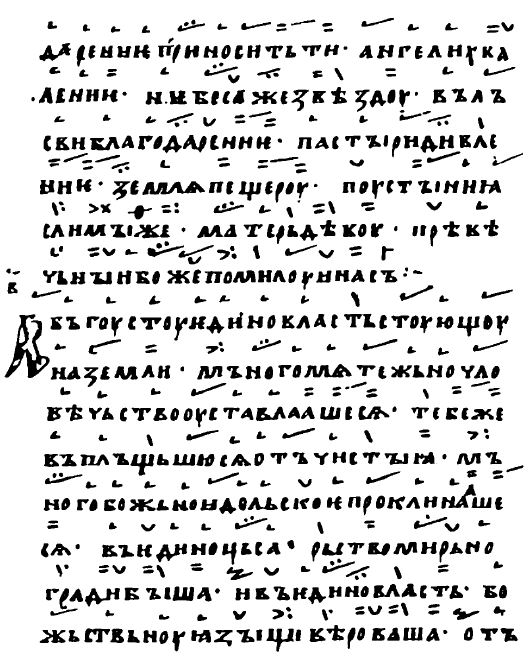 дарение приноситьти· ангелиꙗка
·ление· и небесаже звѣздоу· вълъ
сви благодарение· пастыри дивле
ние· землꙗ пещероу· поустыни ꙗ
сли мы же · матерь дѣвоу · прѣвѣ
чьныи боже помилоуи насъ :~
в
Авъгоустоу единовластьствоующоу
на земли · мъногомѧтежьно чло
вѣчьство оуставлаашесѧ· тебе же
въплъщьшюсѧ отъ чистыꙗ· мъ
ногобожьно идольское проклинаше
сѧ· въ едино цьса· рьство мирьно
гради быша· и въ едино власть· бо
жьствьноую ꙗзыци вѣроваша· отъ